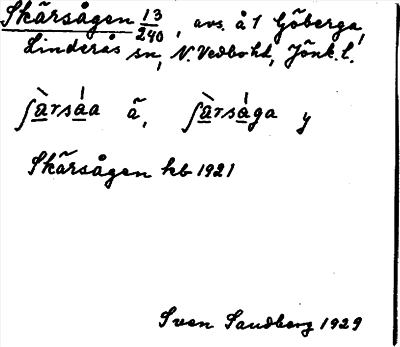 Skärsågen 13/240, avs. å 1 Göberga,
Linderås sn, N. Vedbohd, Jönk. l.
ʃàrsáa ä, ʃàrsága y
Skärsågen kb 1921
Sven Sandberg 1929